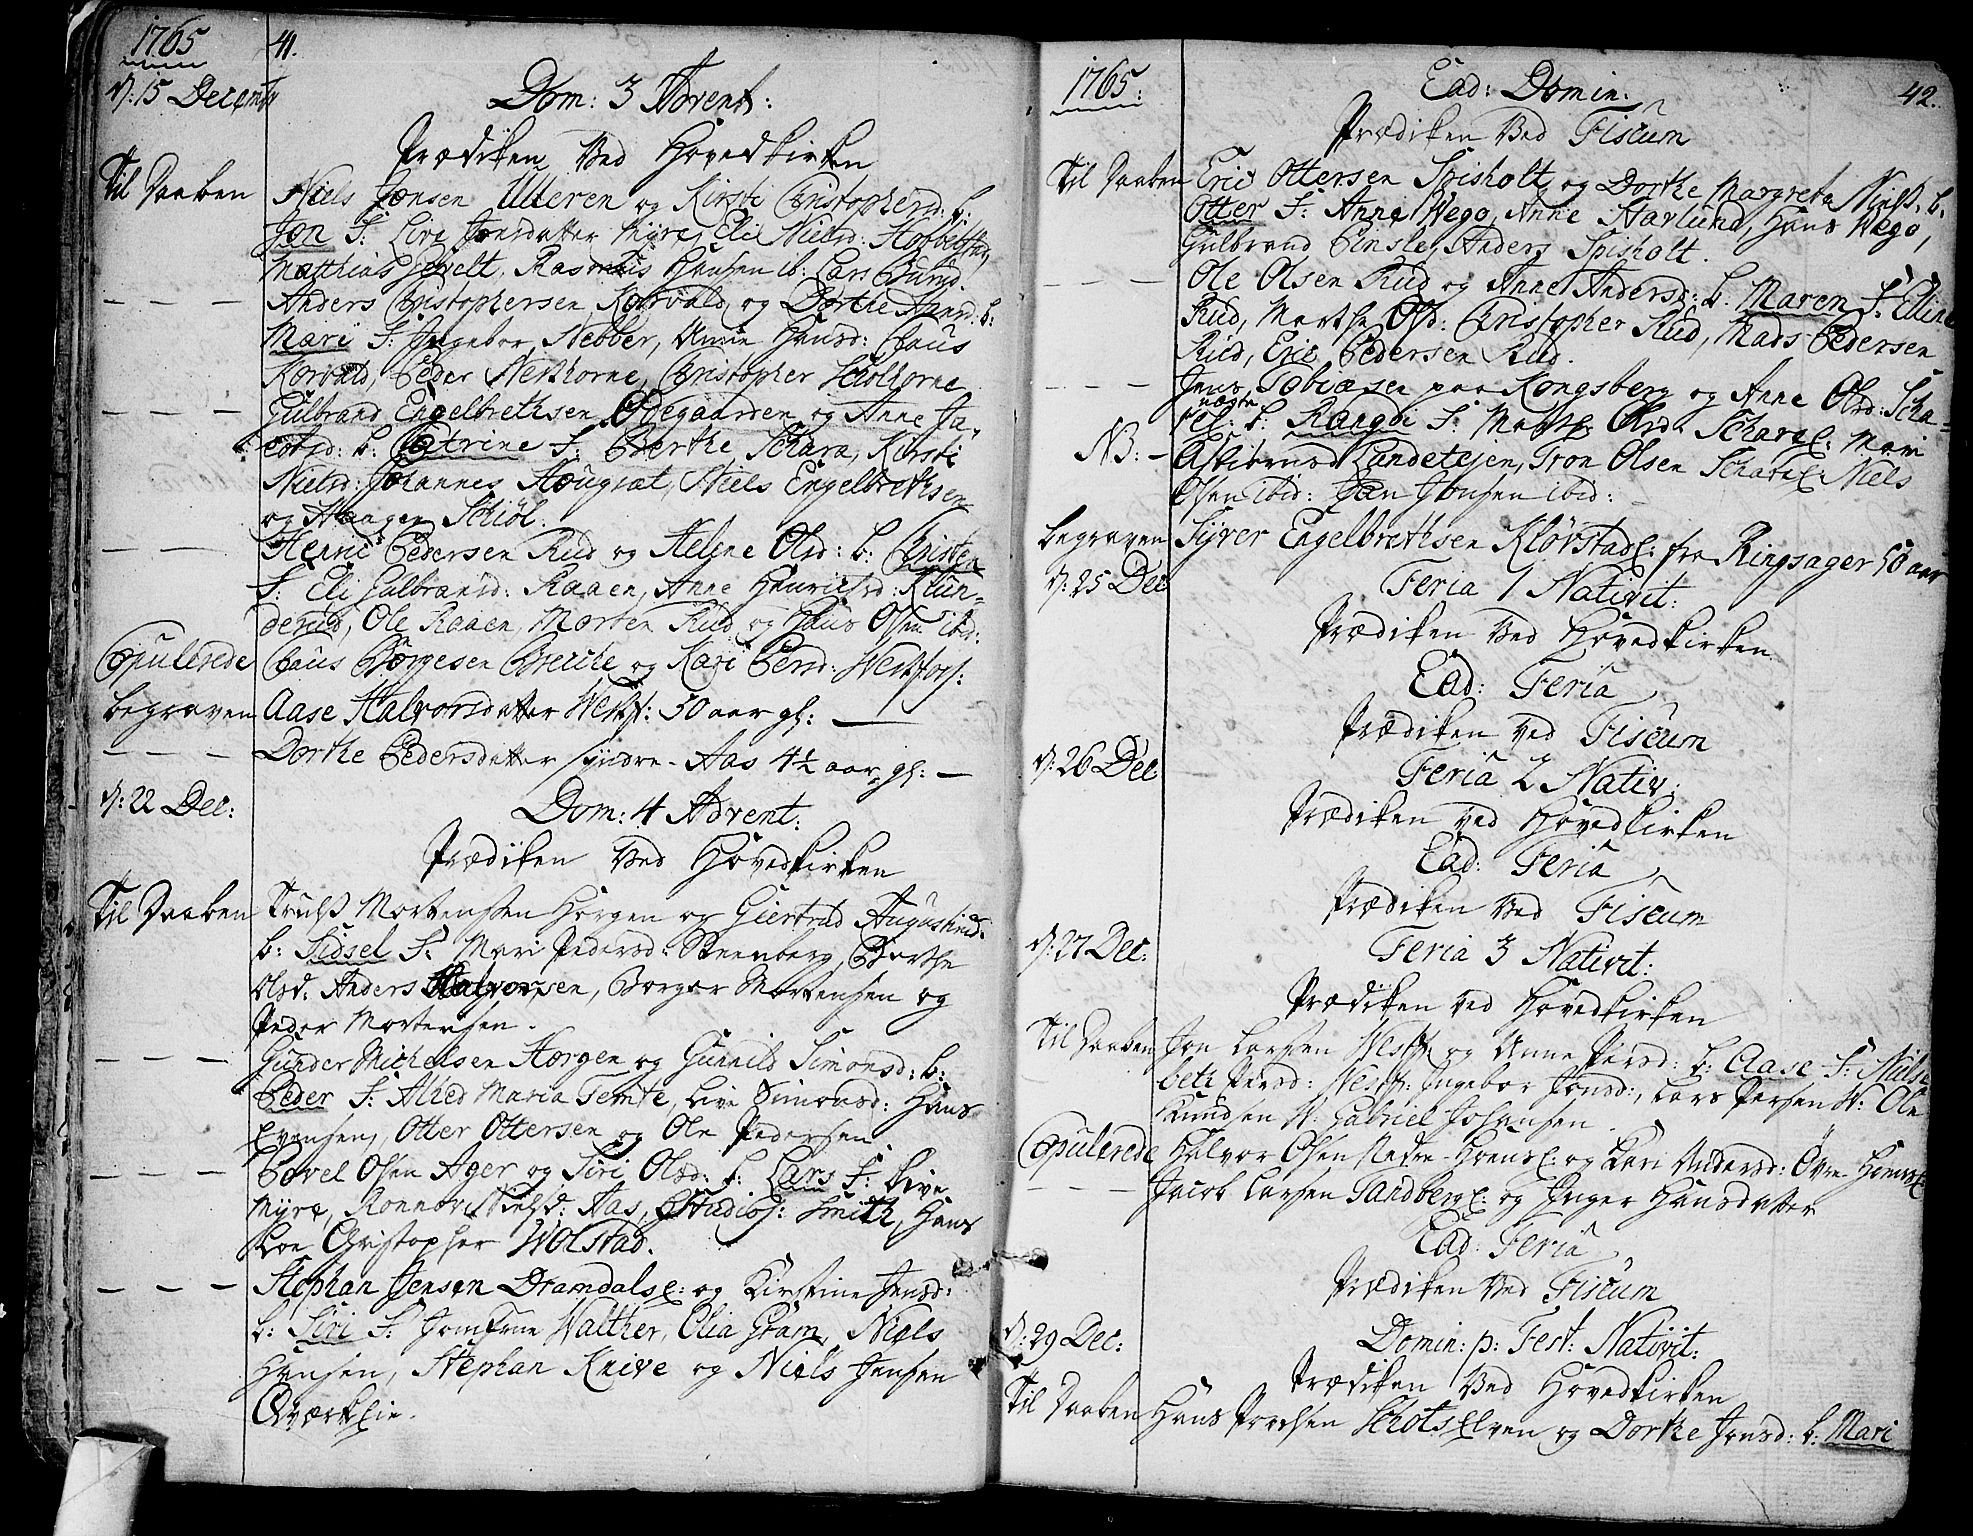 1765 41.
d: 15 Decembr
Dom: 3 Advent:
Prædiken Ved Hovedkirken
Til Daaben Niels Jensen Ulleren og Kirsti Christophersd: b:
Jon F: Live Jonsdatter Myre, Eli Nielsd:
Matthias Rasmus Hansen ib: Lars Bund.
— — — Anders Christophersen Korvald og Dorthe Hansd: b:
Mari F: Ingebor Nebber, Anne Hansd: Claus
Korvald, Peder Nerhorne, Christopher Schothorne
— — — Gulbrand Engelbrethsen Ødegaarden og Anne Ja-
cobsd: b: Catrine F: Berthe Schara, Kirsti
Nielsd: Johannes Niels Engelbrethsen
og Aagen Schiøl.
— — — Henric Pedersen Rud og Helene Olsd: b: Christen
F: Eli Gulbransd: Raaen, Anne Henrichsd: Klun-
derud, Ole Raaen, Morten Rud og Claus Olsen ibd:
Copulerede Claus Børgesen Becche og Kari Persd: Vestfos:
begraven Aase Halvorsdatter Vestf: 50 aar gl: —
— — — Dorthe Pedersdatter Syndre-Aas 4½ aar gl: —
d: 22 Dec: Dom: 4 Advent:
Prædiken Ved Hovedkirken
Til Daaben Truls Mortensen Horgen og Giertrud Augustind:
b: Sidsel F: Mari Pedersd: Steenberg, Berthe
Olsd: Anders Halvorsen, Borger Mortensen og
Peder Mortensen.
— — — Gunder Michelsen Horgen og Gunnild Simonsd: b:
Peder F: Alhed Maria Temte, Live Simonsd: Hans
Evensen, Otter Ottersen og Ole Pedersen.
— — — Povel Olsen Ager og Siri Olsd: b: Lars F: Live
Myre, Ronnov Nielsd: Aas, Studios: Smith, Hans
Loe Christopher Wolstad.
— — — Stephan Jensen Dramdalse: og Kirstine Jensd:
b: Siri F: Jomfrue Walther, Olia Gram, Niels
Hansen, Stephan Knive og Niels Jensen
Qværk Eie.
1765: 42.
Ead: Domin:
Prædiken Ved Fiscum
Til Daaben Eric Ottersen Spisholt og Dorthe Margreta Nielsd: b:
Otter F: Anne Wego, Anne Aarlund, Hans Wego,
Gulbrand Anders Spisholt.
— — — Ole Olsen Rud og Anne Andersd: b. Maren F: Elline
Rud, Marthe Olsd: Christopher Rud, Mads Pedersen
Rud, Eric Pedersen Rud.
— — — Jens Tobiæsen paa Kongsberg og Anne Olsd: Scha-
uægte
rel: b. Rangdi F: Olsd: Schare: Mari
NB: — Asbiørnsd Landetejen, Tron Olsen Schare: Niels
Olsen ibid: Jan Hansen ibid:
begraven Syver Engelbrethsen Kløvstade: fra Ringsager 50 aar
d: 25 Dec: Feria 1 Nativit:
Prædiken Ved Hovedkirken.
Ead: Feria
Prædiken Ved Fiscum
d: 26 Dec Feria 2 Nativ:
Prædiken ved Hovedkirken
Ead: Feria
Prædiken Ved Fiscum
d: 27 Dec: Feria 3 Nativit:
Prædiken ved Hovedkirken
Til Daaben Jon Larsen Vestf: og Anne Persd: b: Aase F: Nils
Persd: Vestf: Ingebor Jonsd:, Lars Persen V: Ole
Knudsen V. Gabriel Johansen.
Copulerede Halvor Olsen Nedre-Hoense: og Kari Andersd: Øvre Hoense
— — — Jacob Larsen Sandberge: og Inger Hansdatter
Ead: Feria
Prædiken Ved Fiscum
d: 29 Dec: Domin: p: Fest: Nativit:
Prædiken Ved Hovedkirken
Til Daaben Hans Povelsen Schotselven og Dorthe Jonsd: b: Mari